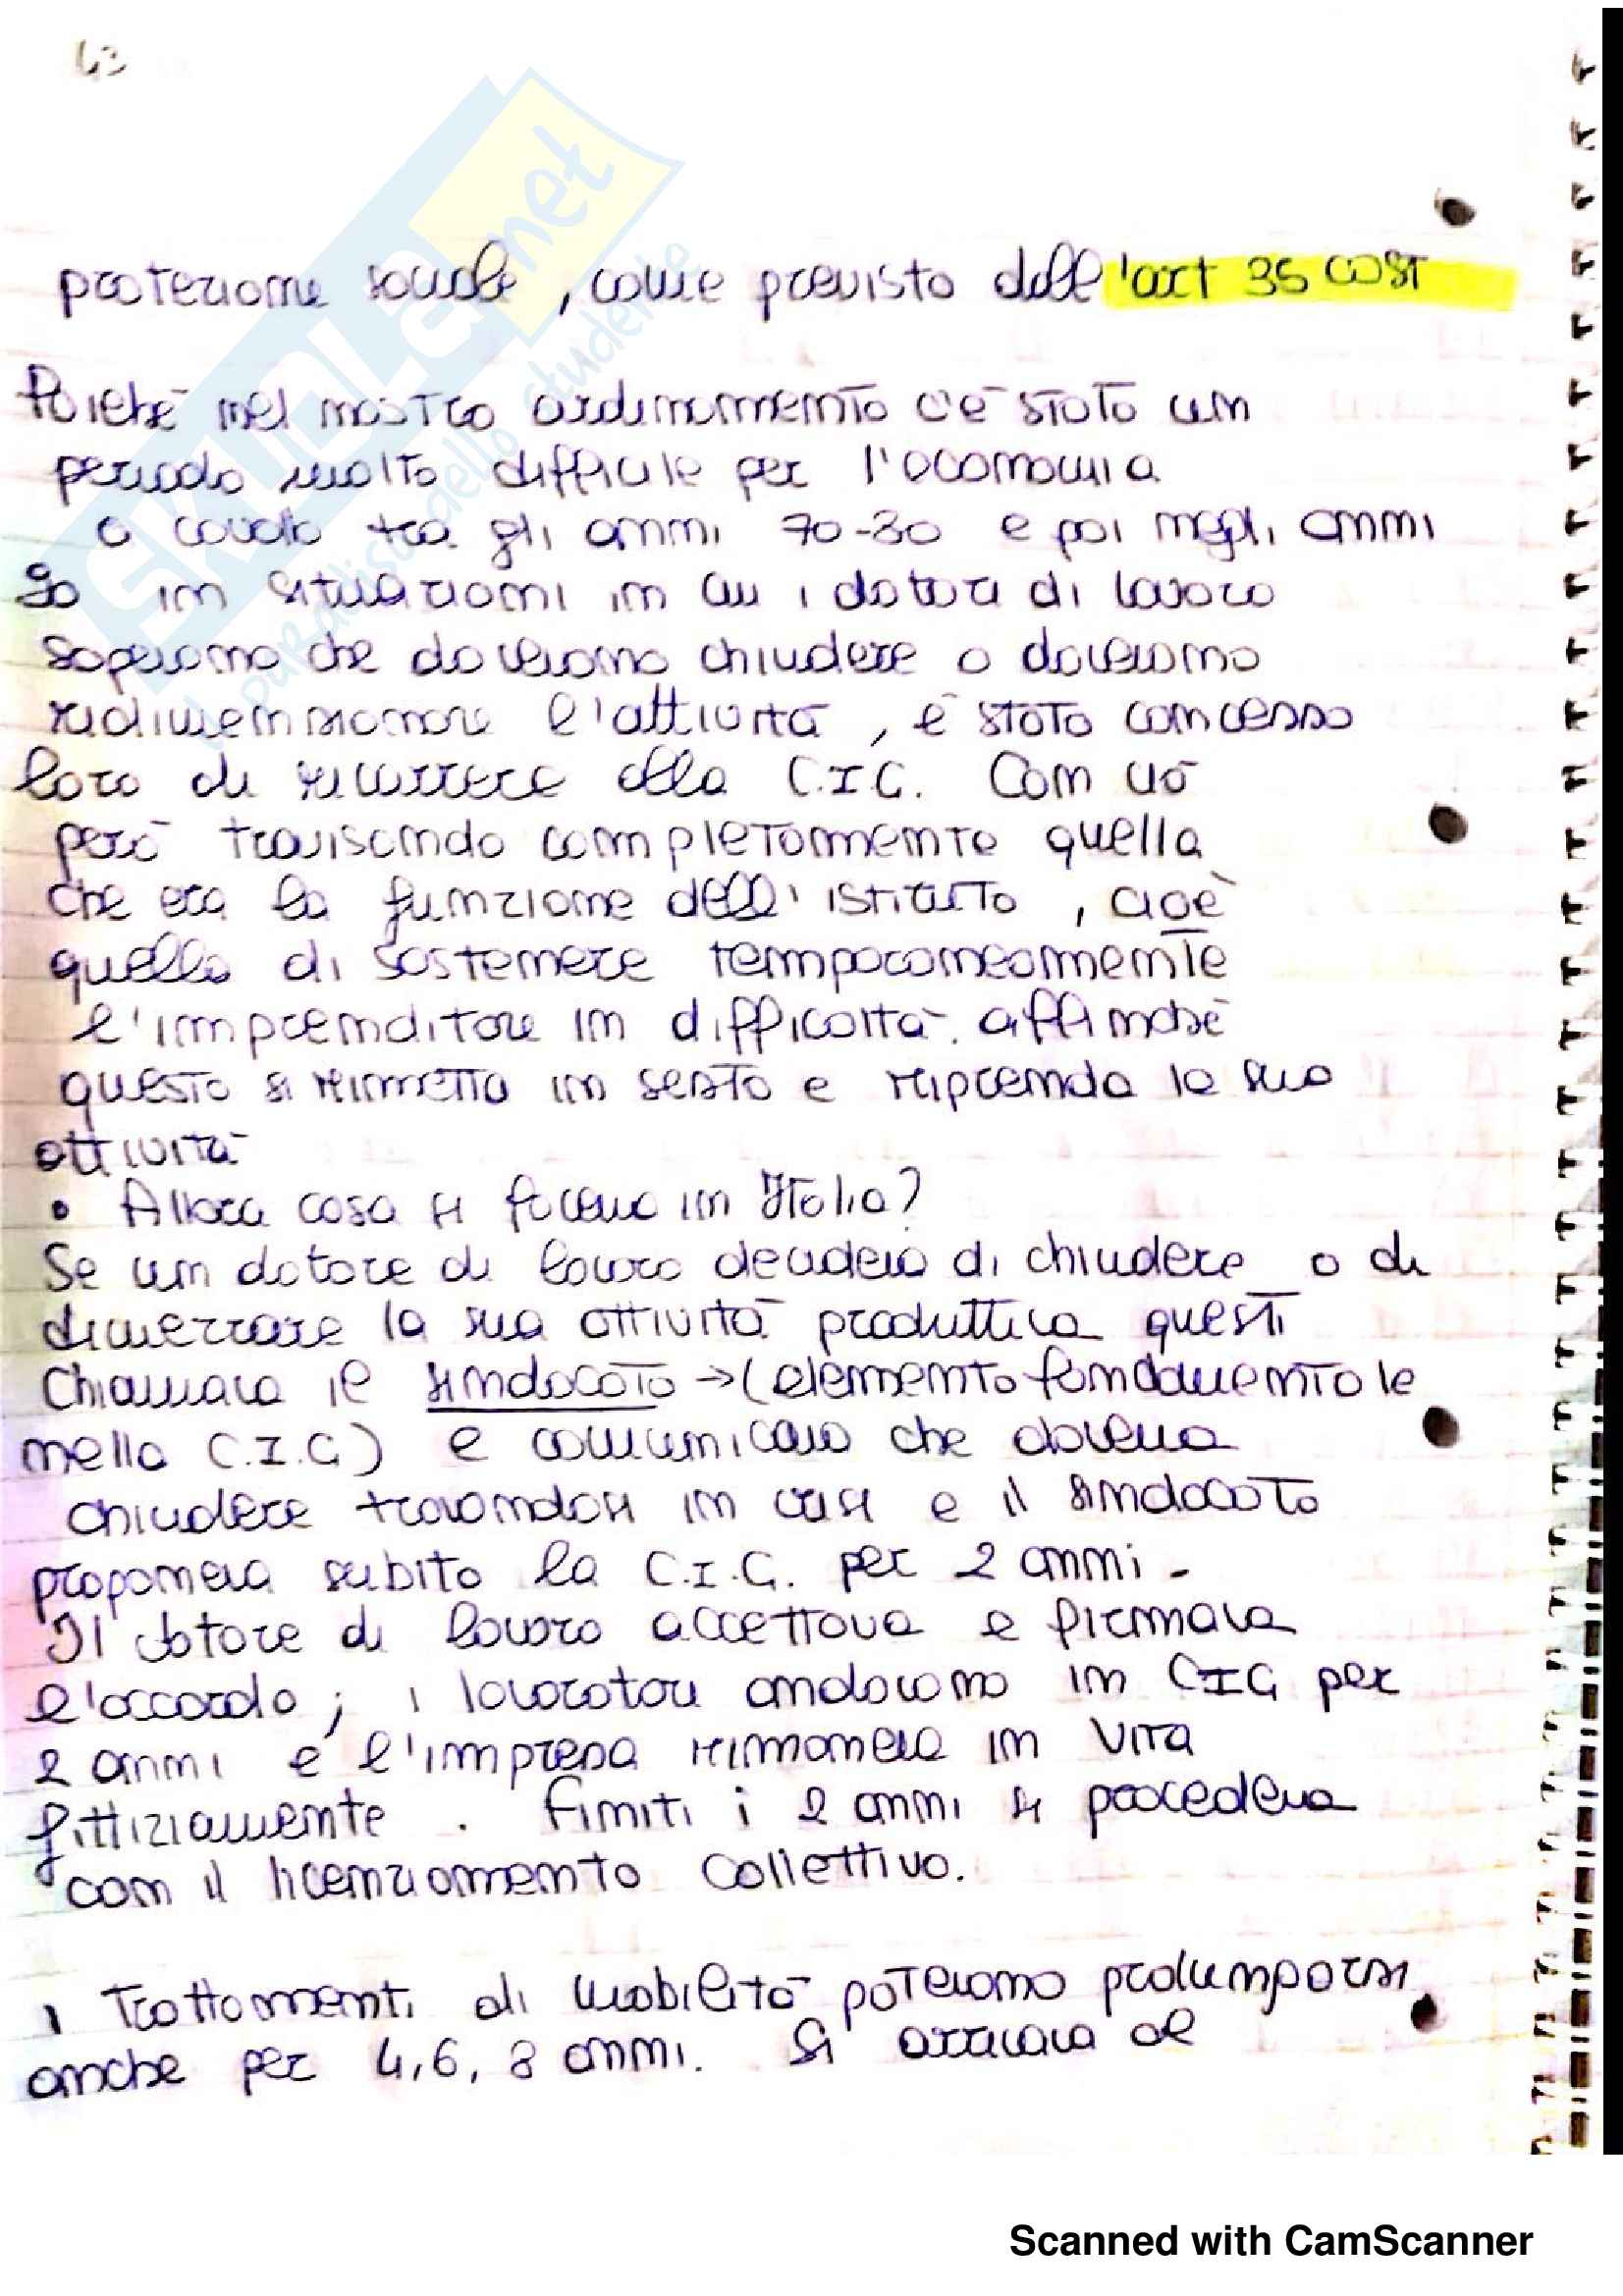 43
SKUOLA.net
il paradiso dello studente
protezione sociale, come previsto dall'art 35 COST
Poiché nel nostro ordinamento c'è stato un
periodo molto difficile per l'economia
a cavallo tra gli anni 70-80 e poi negli anni
90 in situazioni in cui i datori di lavoro
sapevano che dovevano chiudere o dovevano
ridimensionare l'attività, è stato concesso
loro di ricorrere alla C.I.G. Con ciò
però travisando completamente quella
che era la funzione dell'istituto, cioè
quella di sostenere temporaneamente
l'imprenditore in difficoltà. affinché
questo si rimetta in sesto e riprenda la sua
attività
• Allora cosa si faceva in Italia?
Se un datore di lavoro decideva di chiudere o di
dimezzare la sua attività produttiva questi
chiamava il sindacato → (elemento fondamentale
nella C.I.G) e comunicava che doveva
chiudere trovandosi in crisi e il sindacato
proponeva subito la C.I.G. per 2 anni.
Il datore di lavoro accettava e firmava
l'accordo; i lavoratori andavano in CIG per
2 anni e l'impresa rimaneva in vita
fittiziamente. Finiti i 2 anni si procedeva
con il licenziamento collettivo.
i trattamenti di mobilità potevano prolungarsi
anche per 4, 6, 8 anni. Si arrivava al
Scanned with CamScanner